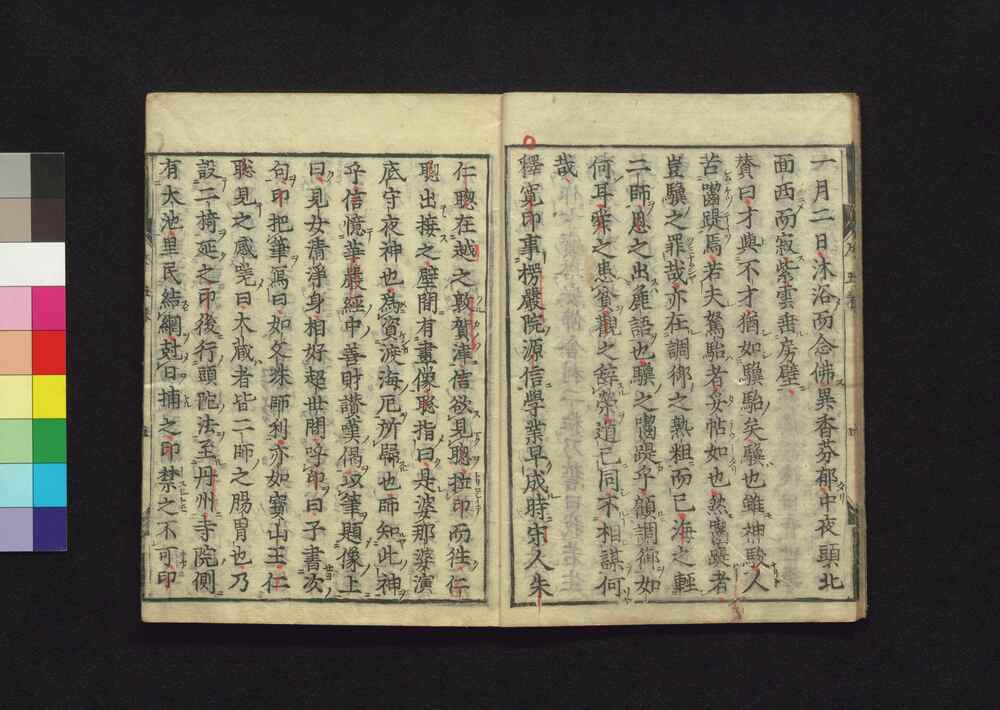 一月二日沐浴而念佛異香芬郁中夜頭北
面西而寂紫雲垂房壁
賛曰才與不才猶如驥駘矣驥也雖神駿人
苦齧踶焉若夫駑駘者妥帖如也然齧踶者
豈驥之罪哉亦在調御之熟粗而已海之輕
二師恩之出麁語也驥之齧踶乎願調御如
何耳乘之惠賓觀之辭榮道已同不相謀何
哉
釋寛印事楞嚴院源信學業早成時宋人朱
仁聰在越之敦賀津信欲見聰拉印而徃仁
聰出接之壁間有畫像聰指曰是婆那婆演
底守夜神也爲資渡海厄所歸也師知此神
乎信憶華嚴經中善財讃嘆偈取筆題像上
曰見女清淨身相好超世間呼印曰子書次
句印把筆寫曰如文殊師利亦如寶山王仁
聰見之感嘆曰大藏者皆二師之膓胃也乃
設二椅延之印後行頭陀法至丹州寺院側
有大池里民結網尅日捕之印禁之不可印